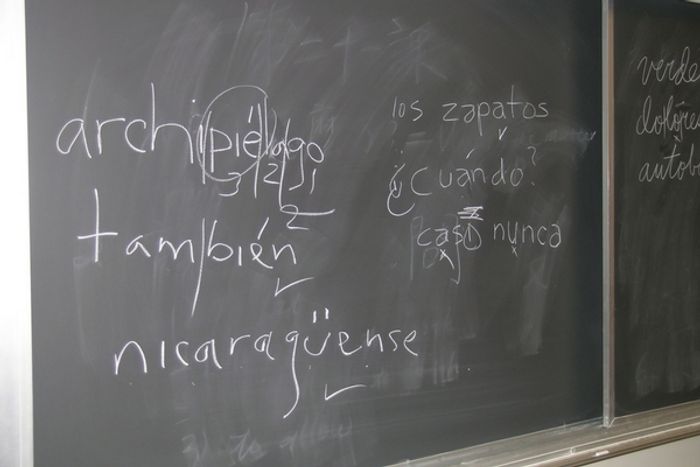 archipiélago
3 2 1
2
también
nicaragüense
los zapatos
¿Cuándo?
casi nunca
verde